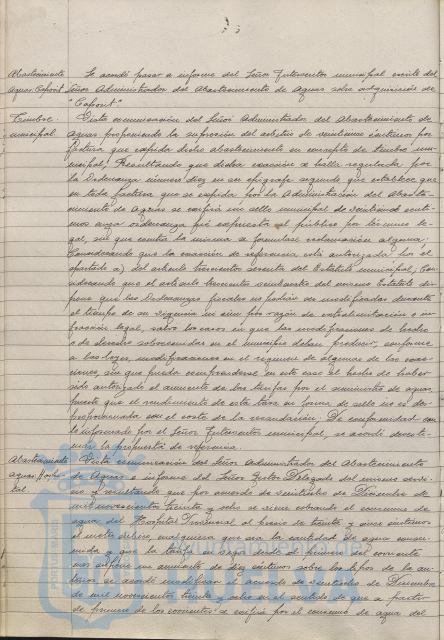 Abastecimiento Se acordó pasar a informe del Señor Interventor municipal escrito del
aguas. Caporit Señor Administrador del Abastecimiento de Aguas sobre adquisición de
"Caporit"
Timbre Vista comunicación del Señor Administrador del Abastecimiento de
municipal. Aguas proponiendo la supresión del arbitrio de veinticinco céntimos por
factura que expide dicho abastecimiento en concepto de timbre mu-
nicipal; Resultando que dicha exacción se halla regulada por
la Ordenanza número diez en su epígrafe segundo que establece que
en toda factura que se expida por la Administración del Abaste-
cimiento de Aguas se exigirá un sello municipal de veinticinco cénti-
mos cuya ordenanza fué expuesta al público por término le-
gal, sin que contra la misma se formulase reclamación alguna;
Considerando que la exacción de referencia está autorizada por el
apartado a) del artículo trescientos sesenta del Estatuto municipal; Con-
siderando que el artículo trescientos del mismo Estatuto dis-
pone que las Ordenanzas fiscales no podrán ser modificadas durante
el tiempo de su vigencia ni aún por razón de o in-
fracción legal, salvo los casos en que las modificaciones de hecho
o de derecho sobrevenidas en el municipio deban producir, conforme
a las leyes, modificaciones en el régimen de algunas de las exac-
ciones, sin que pueda comprenderse en este caso el hecho de haber
sido autorizado el aumento de las tarifas por el suministro de aguas,
puesto que el rendimiento de esta tasa en forma de sello no es des-
proporcionado con el costo de la recaudación, De conformidad con
lo informado por el Señor Interventor municipal, se acordó desesti-
mar la propuesta de referencia.
Abastecimiento Vista comunicación del Señor Administrador del Abastecimiento
aguas. Hospi- de Aguas e informe del Señor Gestor Delegado del mismo servi-
tal. cio y resultando que por acuerdo de veintiocho de Diciembre de
mil novecientos treinta y ocho se viene cobrando el consumo de
agua del Hospital Provincial al precio de treinta y cinco céntimos
el metro cúbico, cualquiera que sea la cantidad de agua consu-
mida y que la tarifa en vigor desde el primero del corriente
mes supone un aumento de diez céntimos sobre los tipos de la an-
terior se acordó modificar el acuerdo de veintiocho de Diciembre
de mil novecientos treinta y ocho en el sentido de que a partir
de primero de los corrientes se exigirá por el consumo de agua del